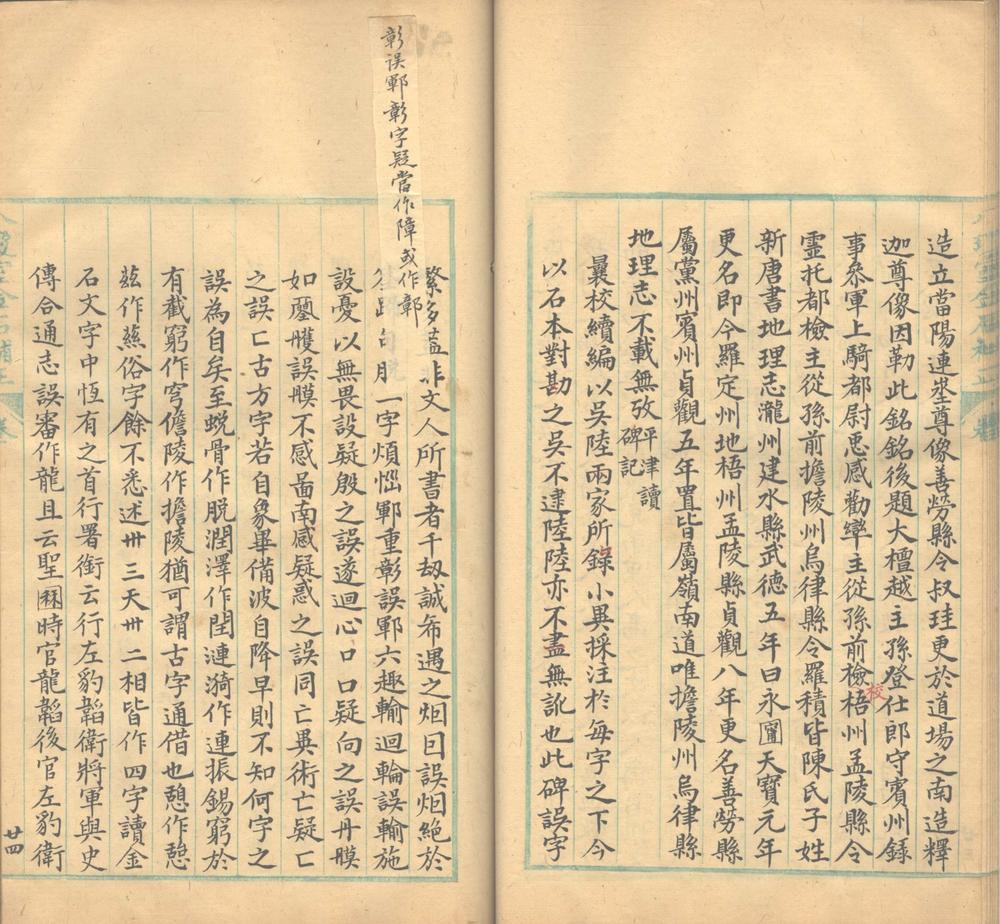 造立當陽連坐尊像善勞縣令叔珪更於道場之南造釋
迦尊像因勒此銘銘後題大檀越主孫登仕郎守賓州錄
事叅軍上騎都尉惠感勸檢校主從孫前檢校梧州孟陵縣令
靈托都檢主從孫前擔陵州烏律縣令羅積皆陳氏子姓
新唐書地理志瀧州建水縣武德五年曰永寧天寶元年
更名即今羅定州地梧州孟陵縣貞觀八年更名善勞縣
屬黨州賓州貞觀五年置皆屬嶺南道唯擔陵州烏律縣
地理志不載無攷 平津讀
碑記
曩校續編以吳陸兩家所錄小異採注於每字之下今
以石本對勘之吳不逮陸陸亦不盡無訛也此碑誤字
彰誤鄆彰字疑當作障或作鄣
繁多蓋非文人所書者千劫誠布遇之炟曰誤炟絕於
一字煩惱鄆重彰誤鄆六趣輪迴輪誤輸施
設憂以無畏設疑殷之誤遂迴心口口疑向之誤丹臒
如雘臒誤膜不感啚南感疑惑之誤同亡異術亡疑亾
之誤匚古方字若自象畢備波自降早則不知何字之
誤為自矣至蛻骨作脫潤澤作閏漣漪作連振錫窮於
有截窮作穹儋陵作擔陵猶可謂古字通借也憩作憇
茲作慈俗字餘不悉述卅三天卅二相皆作四字讀金
石文字中恆有之首行署銜云行左豹韜衛將軍與史
傳合通志誤審作龍且云聖𥘿時官龍韜後官左豹衛
廿四